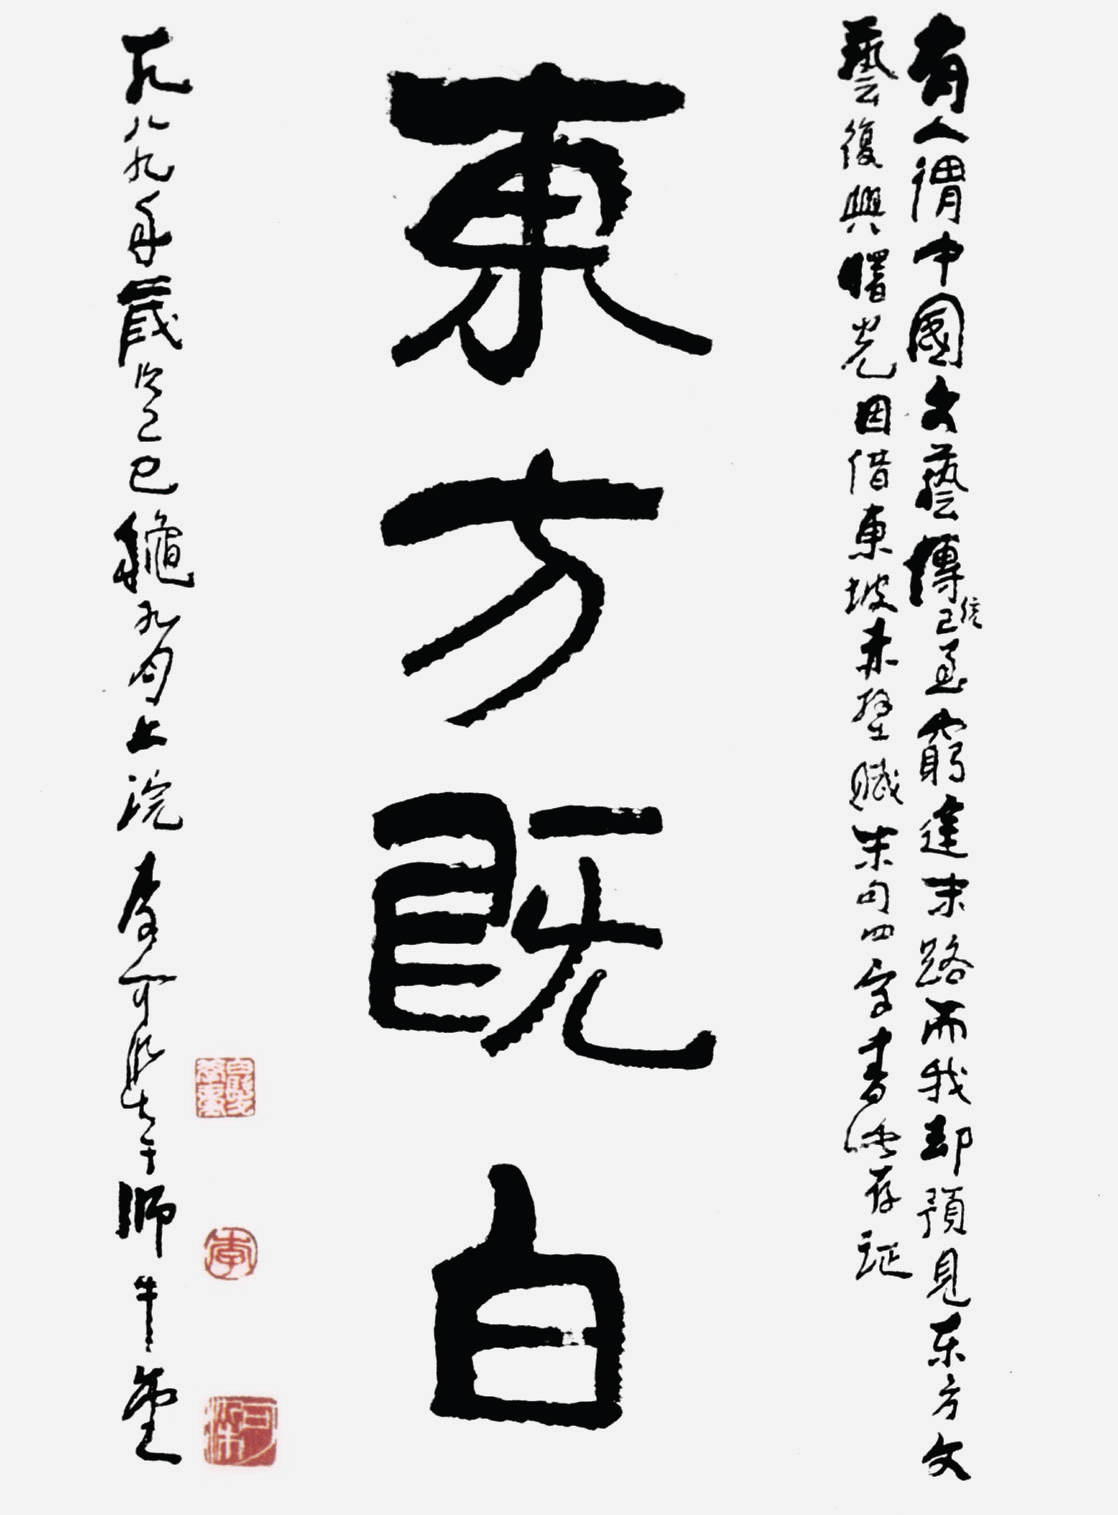 有人謂中國文藝傳統已至窮途末路而我却預見东方文
藝復興曙光因借東坡赤壁賦末句四字書此存证
東方既白
一九八九年歲次己巳龝九月上浣李可染于師牛堂
白髮學童
李
可染